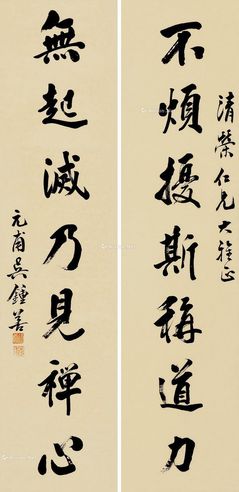 清榮仁兄大雅正
不煩擾斯稱道力
無起滅乃見禪心
元甫吳鍾善